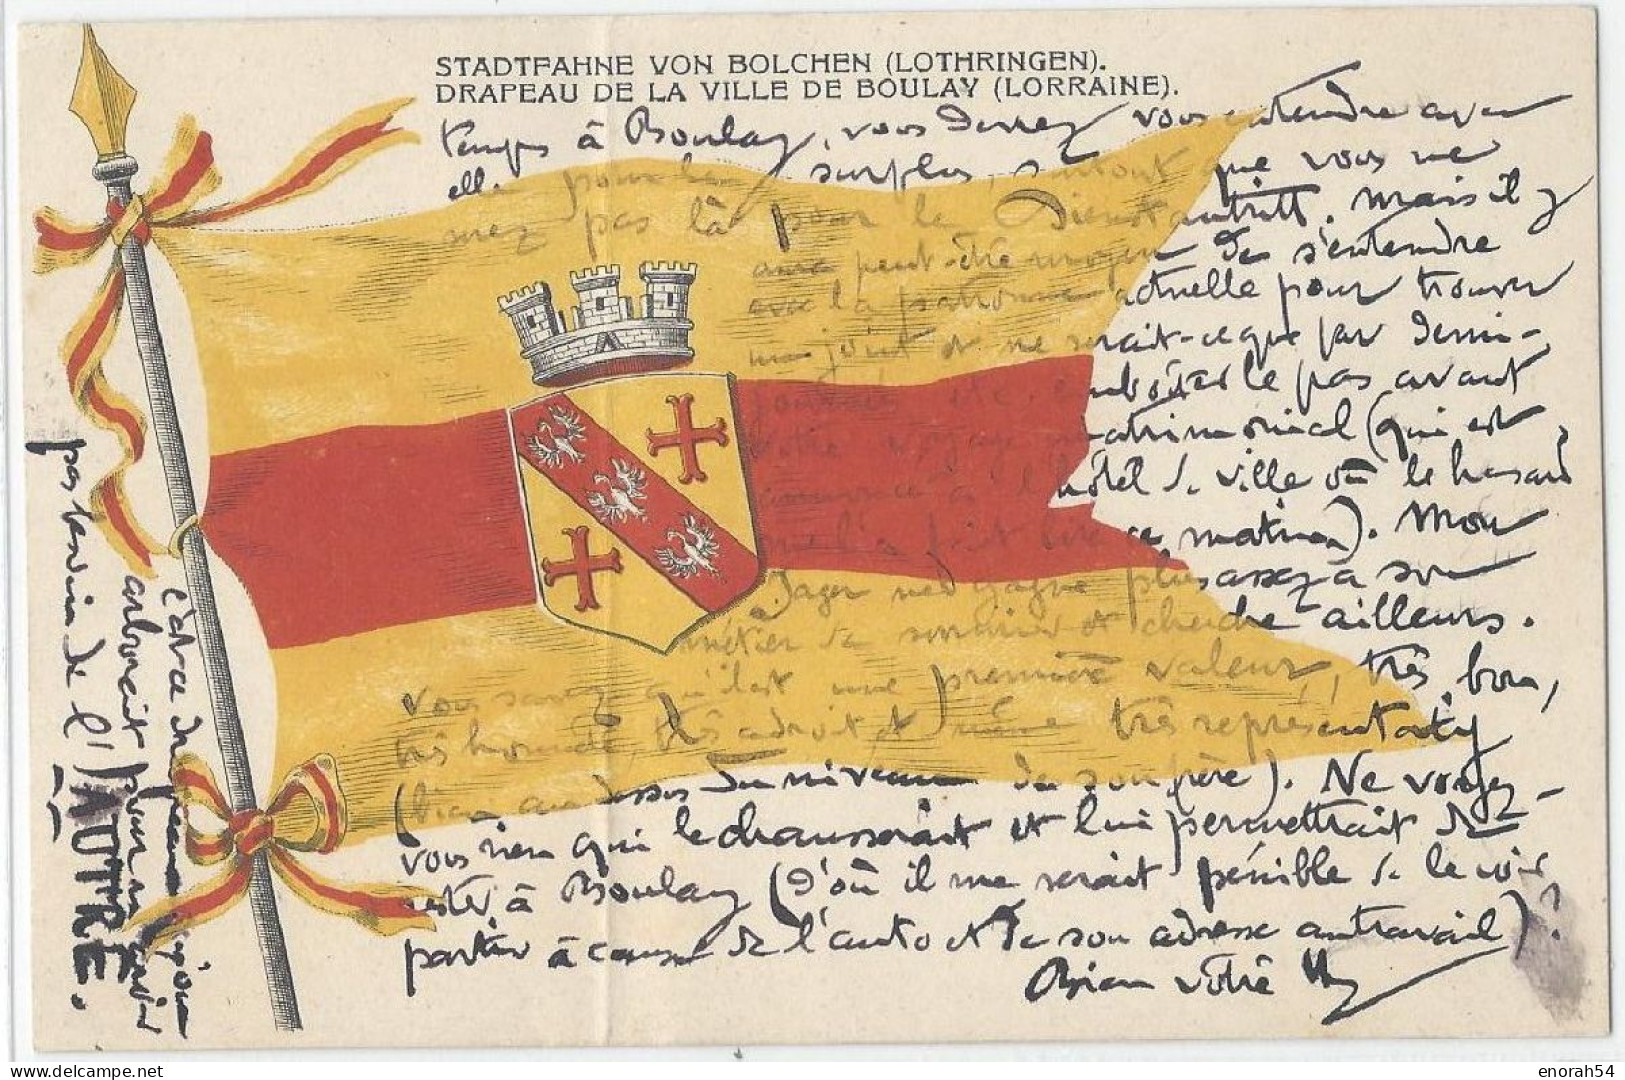 STADTFAHNE VON BOLCHEN (LOTHRINGEN).
DRAPEAU DE LA VILLE DE BOULAY (LORRAINE).
temps à Boulay, vous devrez vous entendre avec
elle pour le surplus, surtout que vous ne
serez pas là pour le Dienstantritt. Mais il y
aura peut-être moyen de s'entendre
avec la patronne actuelle pour trouver
un joint et ne serait-ce que par demi-
journée etc. emboîter le pas avant
votre voyage matrimonial (qui est
annoncé à l'hôtel de ville où le hasard
me l'a fait lire ce matin). Mon
Jager ne gagne plus assez à son
métier de serrurier et cherche ailleurs.
Vous savez qu'il est une première valeur, très bon,
très honnête, très adroit et même très représentatif
(bien au dessus du niveau de son père). Ne voyez-
vous rien qui le chausserait et lui permettrait de
rester à Boulay (d'où il me serait pénible de le voir
partir à cause de l'auto et de son adresse au travail)?
Bien vôtre
l'ava
arborait pour un
pas besoin de l'AUTRE.
enorah54